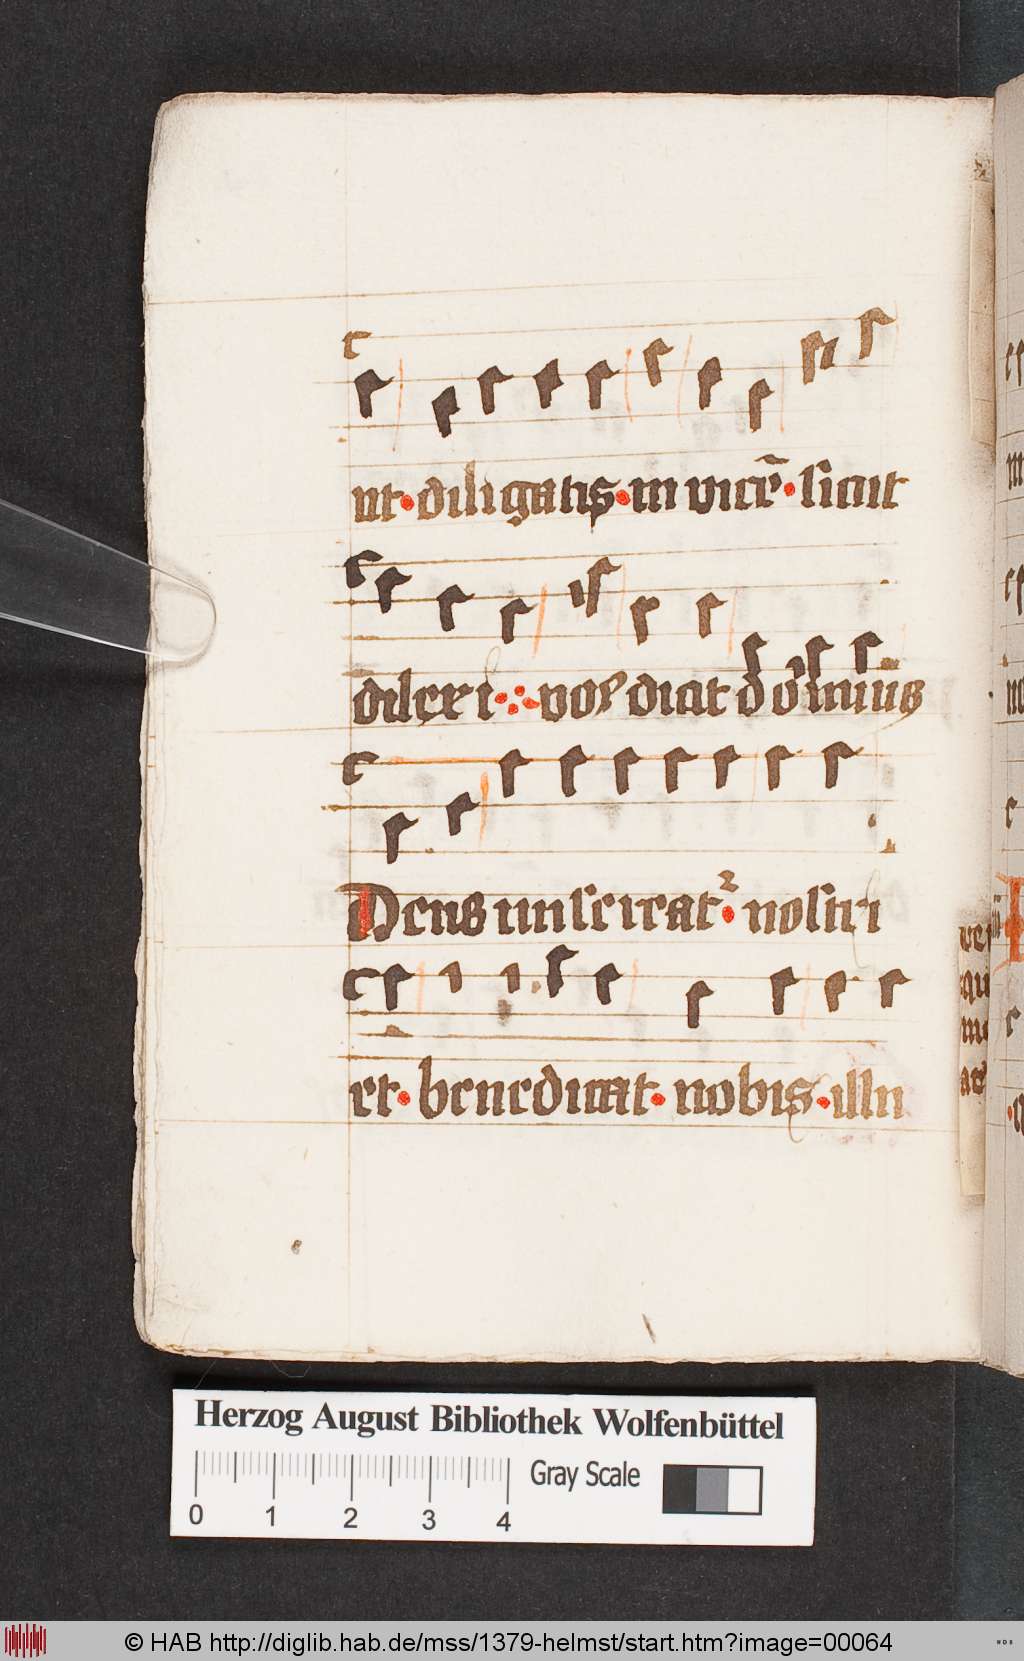 ut · diligatis · in vicē · sicut
dilexi vos dicit dominus
Deus misereatᷣ · nostri
et · benedicat · nobis · illu
Herzog August Bibliothek Wolfenbüttel
Gray Scale
0 1 2 3 4
© HAB http://diglib.hab.de/mss/1379-helmst/start.htm?image=00064